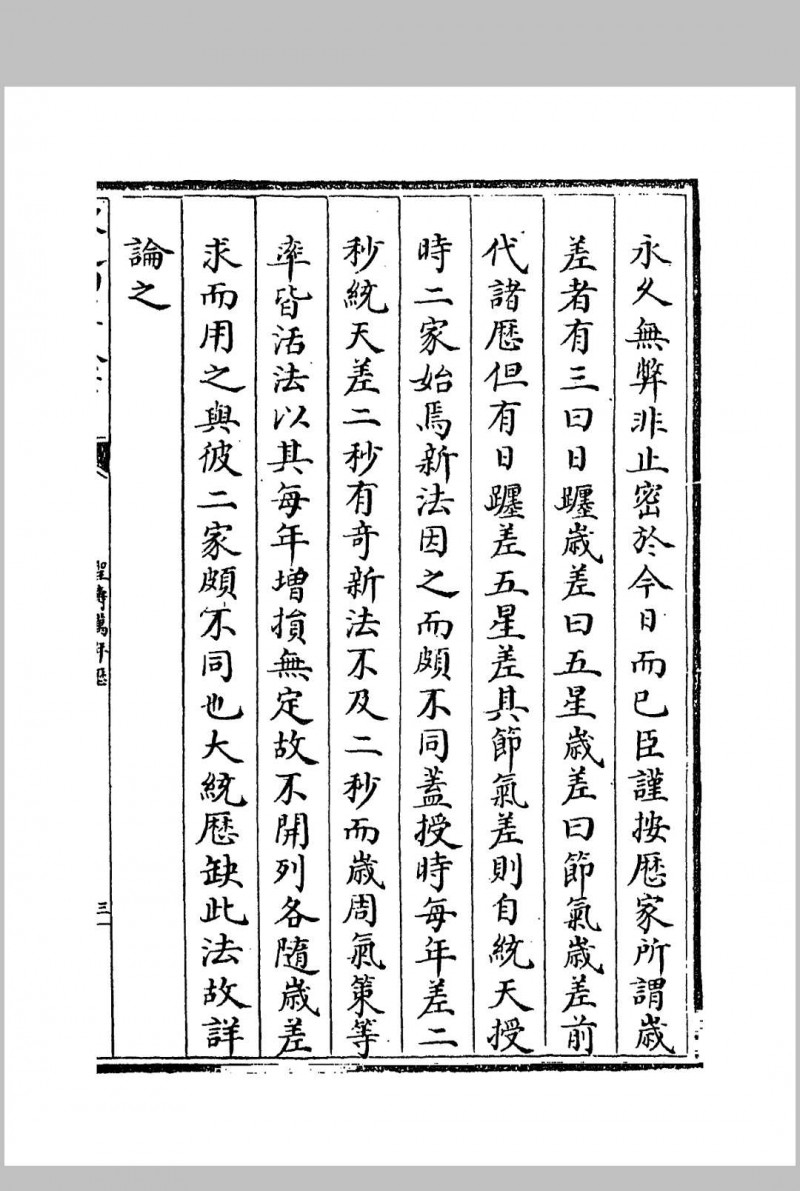 永久無弊非止密於今日而已臣謹按厯家所謂歲
差者有三曰日躔歲差曰五星歲差曰節氣歲差前
代諸厯但有日躔差五星差其節氣差則自統天授
時二家始焉新法因之而頗不同蓋授時每年差二
秒統天差二秒有奇新法不及二秒而歲周氣策等
率皆活法以其每年增損無定故不開列各隨歲差
求而用之與彼二家頗不同也大統厯缺此法故詳
論之
聖壽萬年厯
三